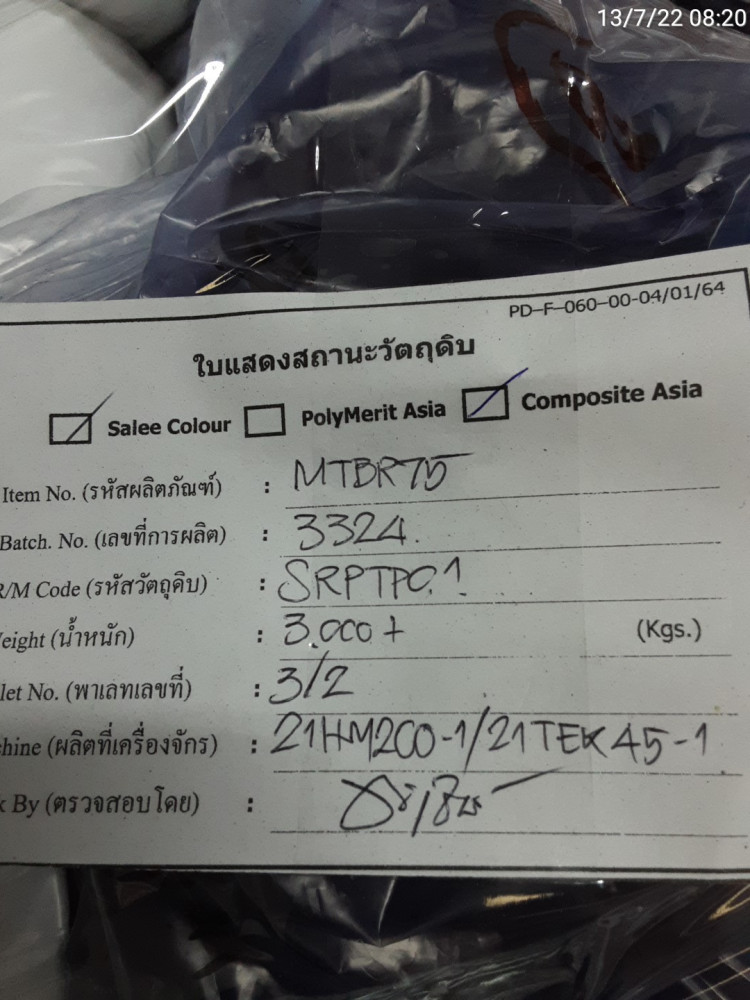 13/7/22 08:20
PD-F-060-00-04/01/64
ใบแสดงสถานะวัตถุดิบ
Salee Colour PolyMerit Asia Composite Asia
Item No. (รหัสผลิตภัณฑ์) : MTBR75
Batch. No. (เลขที่การผลิต) : 3324.
R/M Code (รหัสวัตถุดิบ) : SRPTP0.1
eight (น้ำหนัก) : 3.000 + (Kgs.)
let No. (พาเลทเลขที่) : 3/2
chine (ผลิตที่เครื่องจักร) : 21HM200-1/21TEK45-1
k By (ตรวจสอบโดย) :